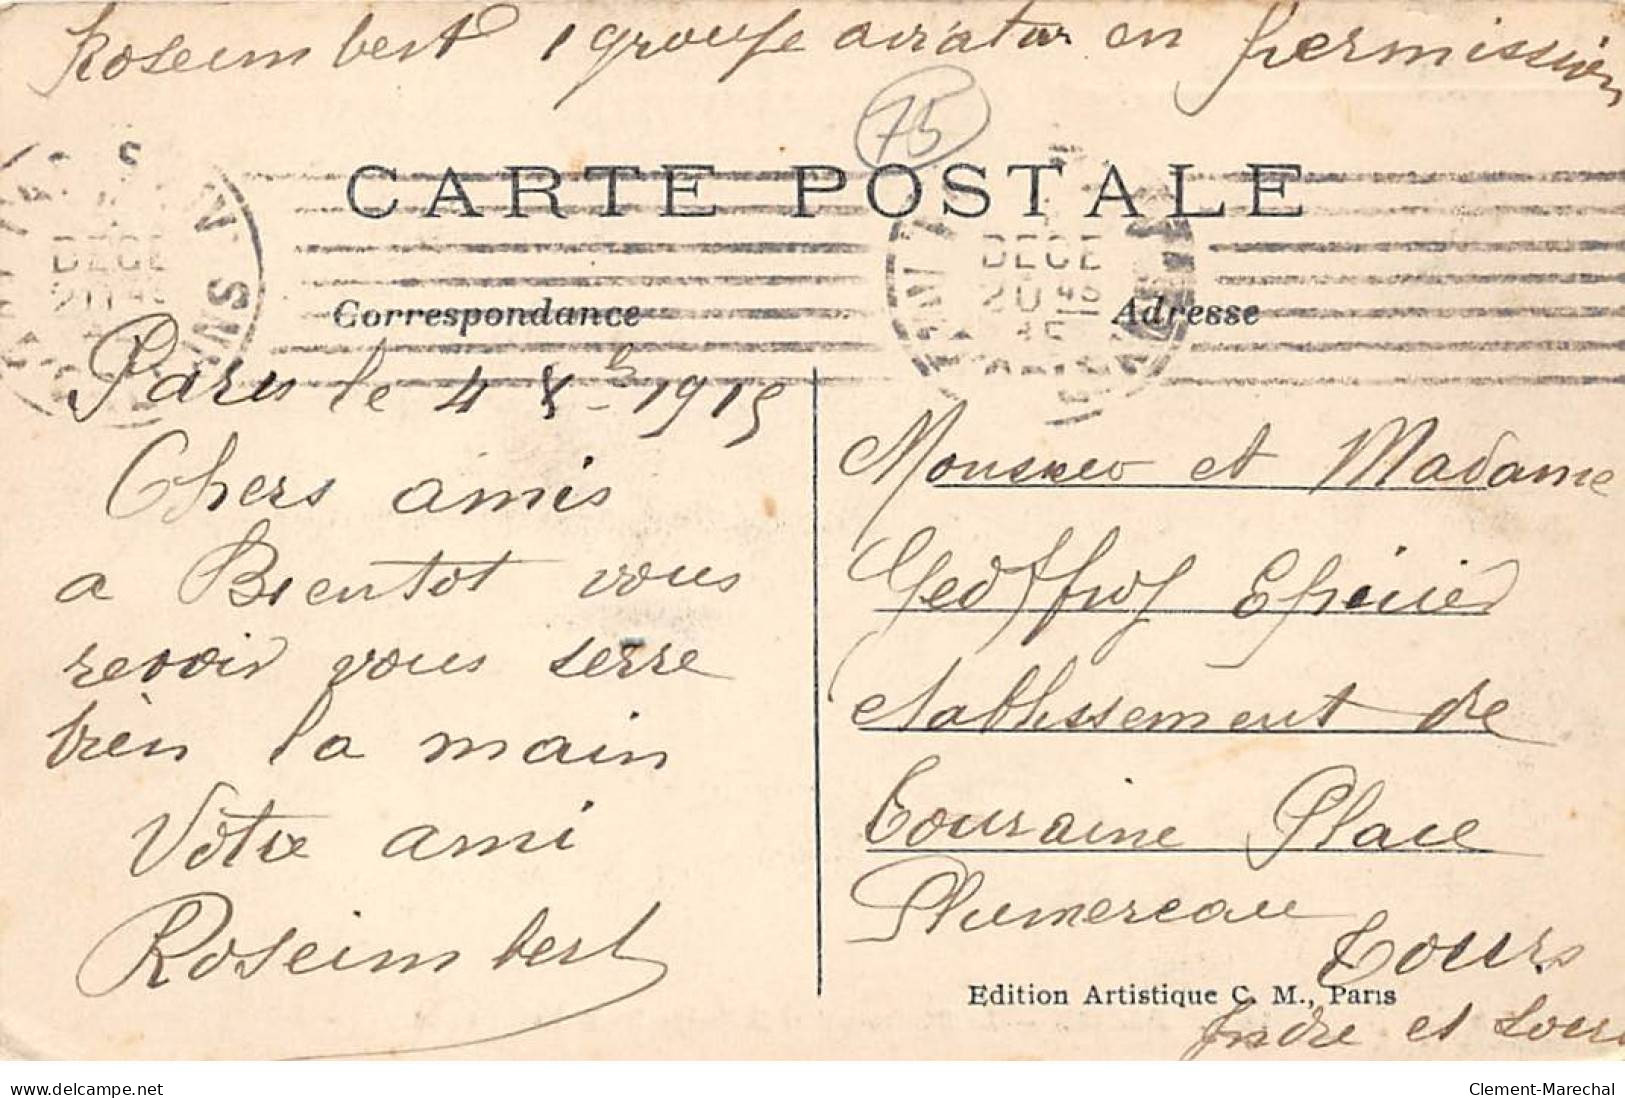 Roseimbert 1 groupe aviation en permission
75
CARTE POSTALE
DECE
DECE
Correspondance
Adresse
Paris le 4 Xb 1915
Chers amis
a Bientot vous
revoir vous serre
bien la main
Votre ami
Roseimbert
et Madame
Geoffroy Epicier
etablissement de
Touraine Place
Plumereau
Tours
Indre et Loire
Edition Artistique C. M., Paris
www.delcampe.net
Clement-Marechal